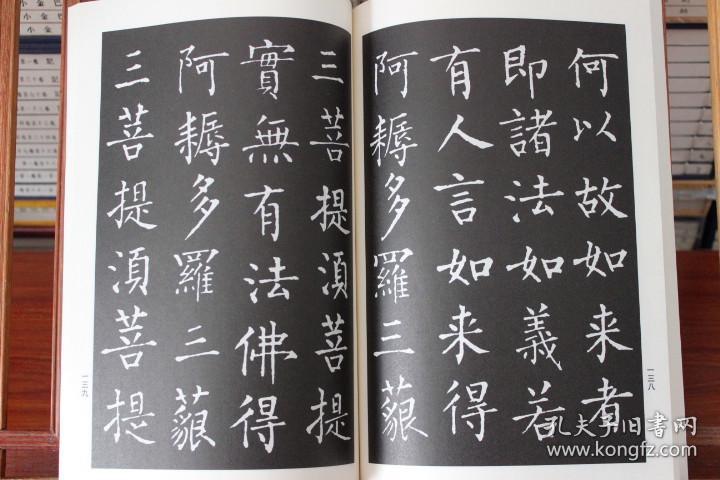 何以故如来者
即諸法如義若
有人言如来得
阿耨多羅三藐
一三八
三菩提湏菩提
實無有法佛得
阿耨多羅三藐
三菩提湏菩提
一三九
孔夫子旧书网
www.kongfz.com